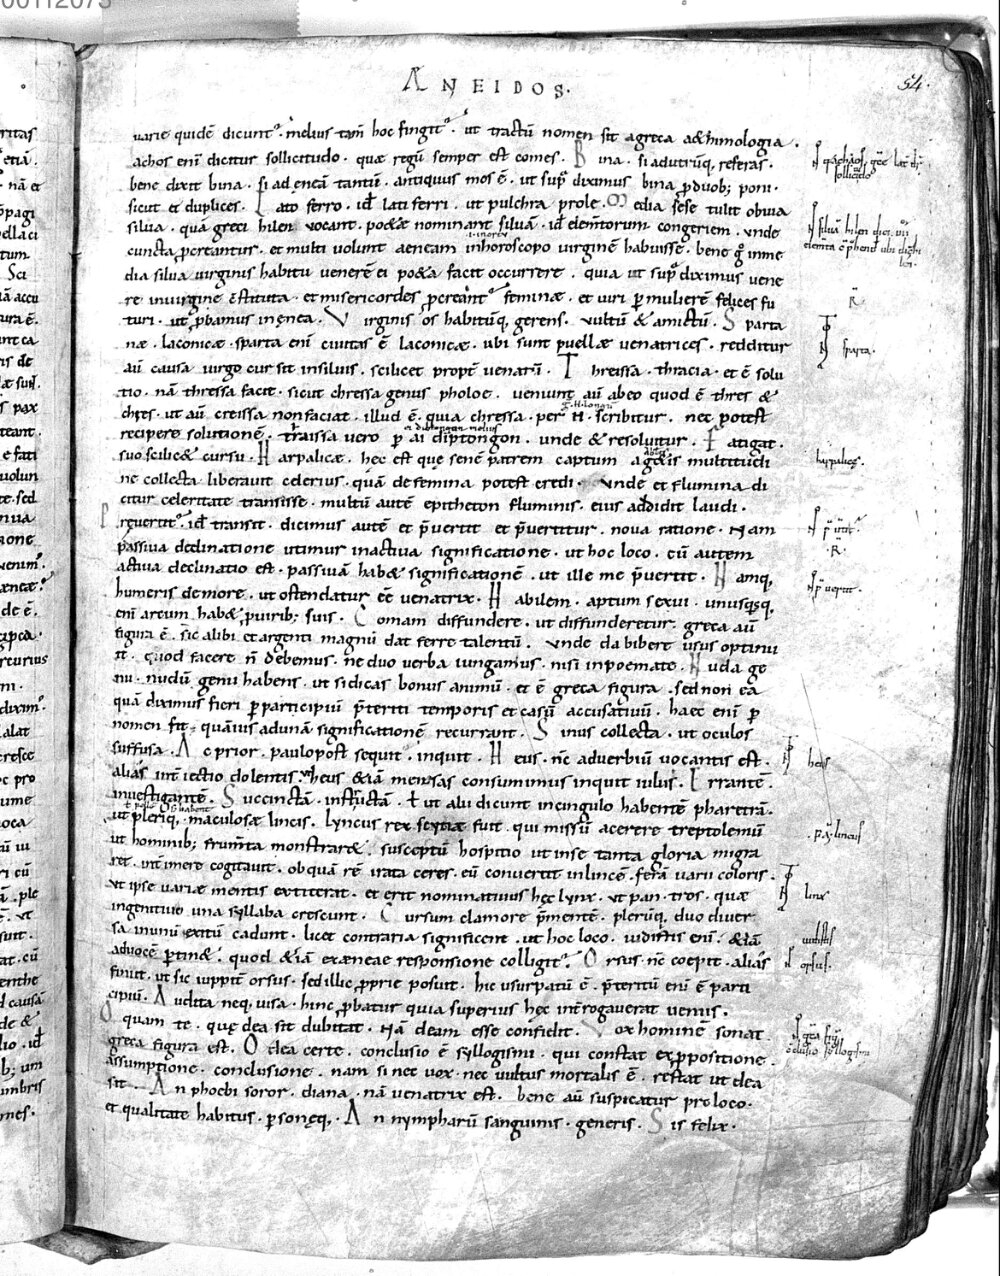 00112073
ANEIDOS.
54.
varie quidē dicunt᷒. melius tam̄ hoc fingit᷒. ut tractū nomen sit a greca aethimologia.
achos enī dicitur sollicitudo. quae regū semper est comes. Bina. si ad utrūq, referas.
bene dixit bina. si ad eneā tantū. antiquus mos ē. ut sup̄ diximus bina p duob; poni.
sicut et duplices. Lato ferro. id lati ferri. ut pulchra prole. Media sese tulit obvia
silva. quā greci hilen vocant. poetae nominant silvā. id elem̄torum congeriem. unde
cuncta pcreantur. et multi volunt aeneam in horoscopo virginē habuisse. bene ḡ in me
dia silva virginis habitu venerē ei poeta facit occurrere. quia ut sup̄ diximus vene
re in virgine c̄stituta. et misericordes pcreant᷒ feminae. et viri p mulierē felices fu
turi. ut pbamus in enea. Virginis os habitūq, gerens. vultū & amictū. Sparta
nae. laconicae. sparta enī civitas ē laconicae. ubi sunt puellae venatrices. redditur
aū causa virgo cur sit in silvis. scilicet propt̄ venatū. Threissa. thracia. et ē solu
tio. nā thressa facit. sicut chressa genus pholoe. veniunt aū ab eo quod ē thres &
chres. ut aū creissa non faciat. illud ē. quia chressa. per H. scribitur. nec potest
recipere solutionē. traissa vero p ai diptongon. unde & resolvitur. Fatigat.
suo scilicet cursu. Harpalice. hec est que senē patrem captum a getis multitudi
ne collecta liberavit celerius. quā de femina potest credi. unde et flumina di
citur celeritate transisse. multū autē epitheton fluminis. eius addidit laudi.
Prevertit᷒. id transit. dicimus autē et p̄vertit et p̄vertitur. nova ratione. Nam
passiva declinatione utimur in activa significatione. ut hoc loco. cū autem
activa declinatio est. passivā habet significationē. ut ille me p̄vertit. Namq,
humeris de more. ut ostendatur eē venatrix. Habilem. aptum sexui. unusq̄sq,
enī arcum habet p virib; suis. Comam diffundere. ut diffunderetur. greca aū
figura ē. sic alibi et argenti magnū dat ferre talentū. unde da bibere usus optinu
it. quod facere n̄ debemus. ne duo verba iungamus. nisi in poemate. Nuda ge
nu. nudū genu habens. ut si dicas bonus animū. et ē greca figura. sed non ea
quā diximus fieri p participiū p̄teriti temporis et casū accusativū. haec enī p
nomen fit. quāvis ad unā significationē recurrant. Sinus collecta. ut oculos
suffusa. Ac prior. paulo post sequit᷒ inquit. Heus. nc̄ adverbiū vocantis est.
alias int̄iectio dolentis. ut heus etiā mensas consumimus inquit iulus. Errantē.
investigantē. Succinctā. instructā. ł ut alii dicunt in cingulo habentē pharetrā.
ut pleriq,. maculosae lincis. Lyncus rex scytiae fuit. qui missū a cerere treptolemū
ut hominib; frum̄ta monstraret. susceptū hospitio ut in se tanta gloria migra
ret. int̄imere cogitavit. ob quā rē irata ceres. eū convertit in lincē. ferā varii coloris.
ut ipse variae mentis extiterat. et erit nominativus hec lynx. ut pan. tros. quae
in genitivo una syllaba crescunt. Cursum clamore p̄mentē. plerūq, duo diver
sa in unū exitū cadunt. licet contraria significent. ut hoc loco. vidistis enī. etiā
ad vocē ptinet. quod etiā ex aeneae responsione colligit᷒. Orsus. nc̄ coepit. alias
finiit. ut sic iuppit̄ orsus. sed illic pprie posuit. hic usurpatū ē. p̄teritū enī ē parti
cipiū. Audita neq, visa. hinc pbatur quia superius hec int̄rogaverat venus.
O quam te. que dea sit dubitat. Nā deam esse confidit. Vox hominē sonat.
greca figura est. O dea certe. conclusio ē syllogismi. qui constat ex ppositione.
assumptione. conclusione. nam si nec vox. nec vultus mortalis ē. restat ut dea
sit. An phoebi soror. diana. nā venatrix est. bene aū suspicatur pro loco.
et qualitate habitus. psoneq,. An nympharū sanguinis. generis. Sis felix.
sparta.
harpalice.
heus
linx
vidistis
orsus.